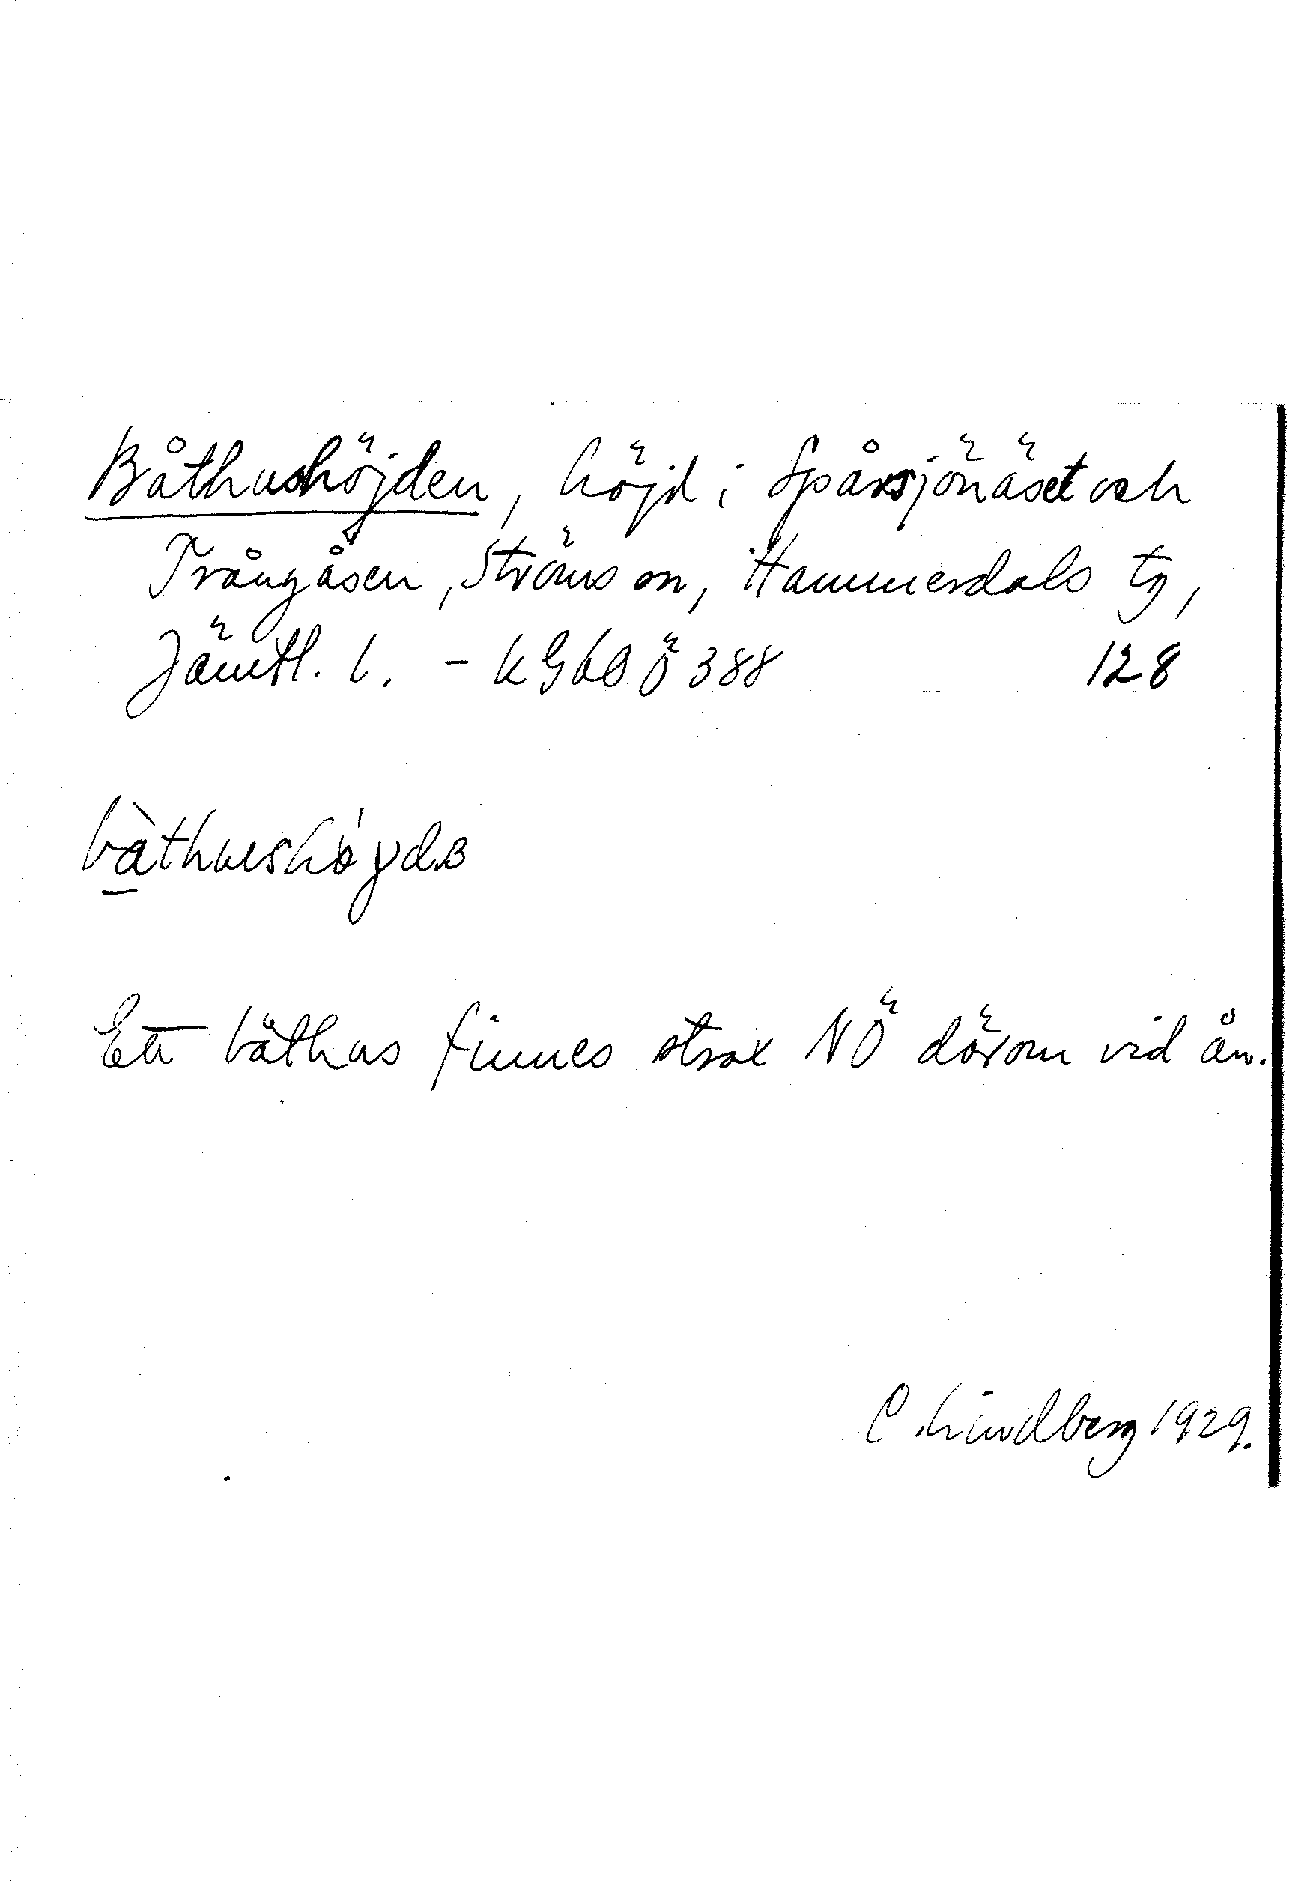 Båthushöjden, höjd i Spårsjönäset och
Trångåsen, Ströms sn, Hammerdals tg,
Jämtl. l. - KGLBÖ 388 128
Ett båthus finnes strax NÖ därom vid ån.
C. Lindberg 1929.